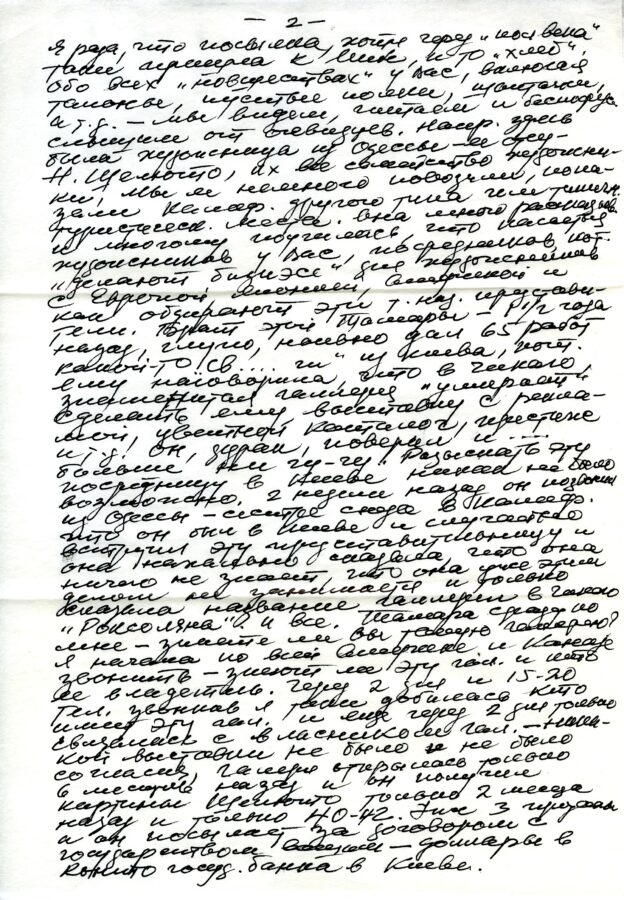 – 2 –
я рада, что посылка, хотя через „пол века"
таки пришла к Вам, и то „хлеб",
обо всех „новшествах" у Вас, включая
талоны, пустые полки, 
и т.д. – мы видим, читаем и беспоср.
слышим от очевидцев. Напр. здесь
была художница из Одессы –
Н. их всё семейство художни-
ки, мы её немного повозили, пока-
зали Калиф. другого типа чем типичн.
туристическ. места. Она много рассказыв.
и многому научилась, что касается
художников у Вас, посредников, кот.
„делают бизнес" для художников
с Европой, Японией, Америкой и
как обдирают эти т. наз. представи-
тели. Брат этой Тамары – 1½ года
назад, глупо, наивно дал 65 работ
какой-то св.... ги" из Киева, кот.
ему наговорила, что в Чикаго
знаменитая галлерея „умирает"
сделать ему выставку с рекла-
мой, цветной каталог, престиж
и т.д. он, дурак, поверил и .....
больше ни гу-гу. Разыскать эту
посредницу в Киеве никак не было
возможно. 2 недели назад он позвонил
из Одессы – сестре сюда в Калиф.
что он был в Киеве и случайно
встретил эту представительницу и
она нахально сказала, что она
ничего не знает, что она уже этим
делом не занимается и только
сказала название галлереи в Чикаго
„Роксоляна" и все. Тамара сразу ко
мне – знаете ли Вы такую галерею?
Я начала по всей Америке и Канаде
звонить – знают ли эту гал. и кто
её владетель. Через 2 дня и 15-20
тел. звонков я таки добилась кто
имеет эту гал. и еще через 2 дня только
связалась с власником гал. – ника-
кой выставки не было и не было
согласия, галерея открылась только
6 месяцев назад и он получил
картины только 2 месяца
назад и только 40-42. Эти 3 проданы
и он посылает за договором с
государством – доллары в
конто госуд. банка в Киеве.